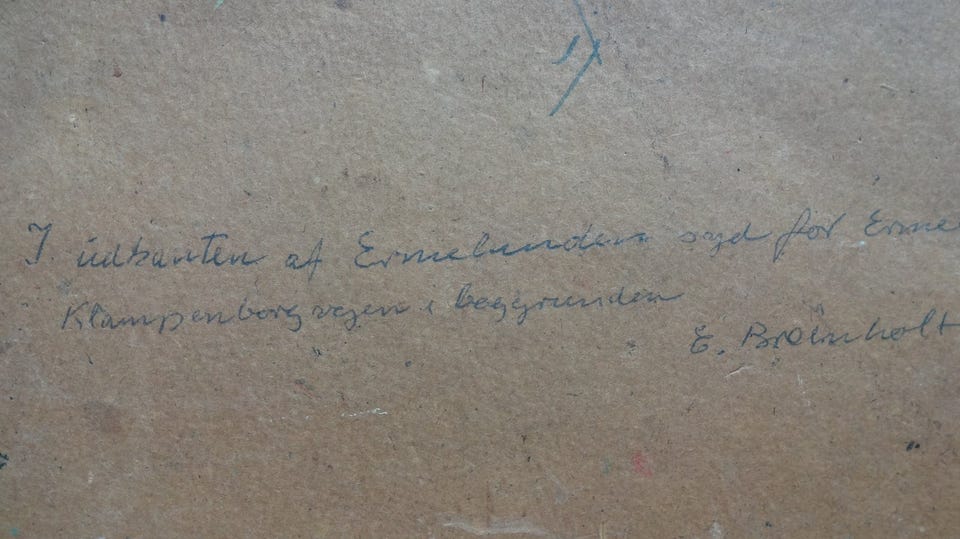 I udkanten af Ermelunden syd for Erme
Klampenborgvejen i baggrunden
E. Breinholt